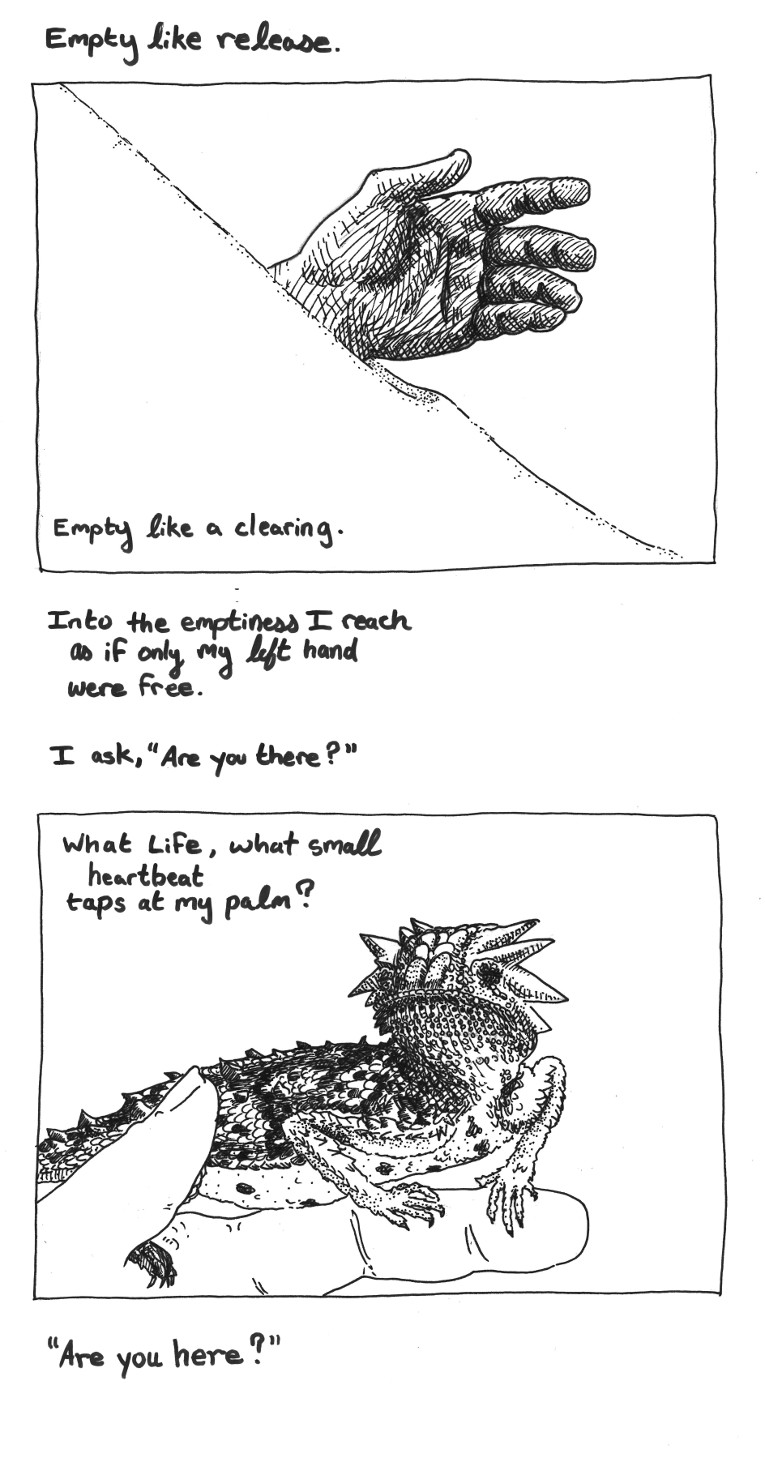 Empty like release.
Empty like a clearing.
Into the emptiness I reach
as if only my left hand
were free.
I ask, "Are you there?"
What Life, what small
heartbeat
taps at my palm?
"Are you here?"